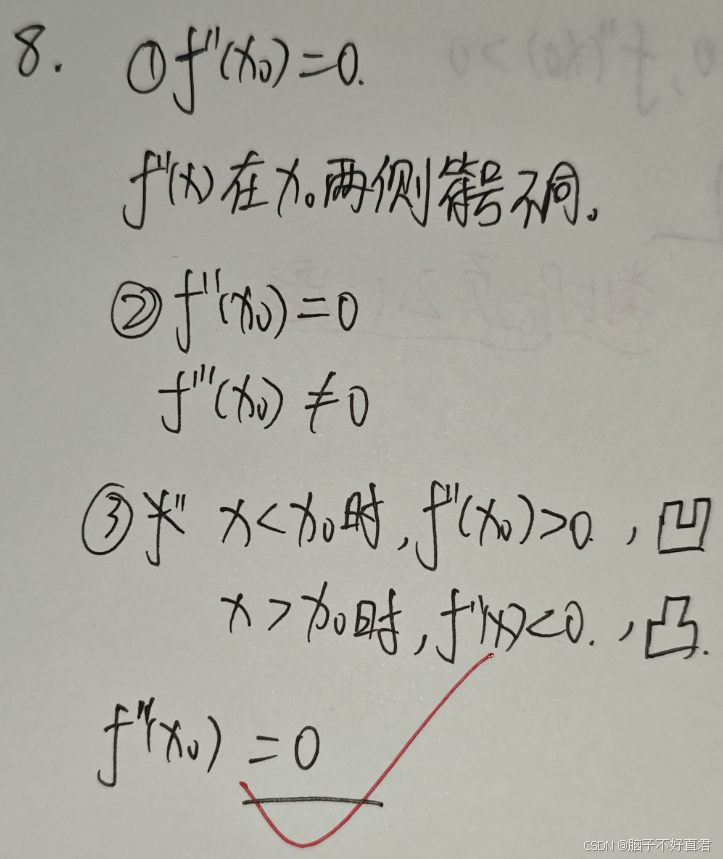 8. ①f''(x₀)=0.
f''(x)在x₀两侧符号不同。
②f''(x₀)=0
f'''(x₀)≠0
③ x<x₀时,f''(x₀)>0.,凹
x>x₀时,f''(x)<0.,凸.
f''(x₀)=0
CSDN @脑子不好直君